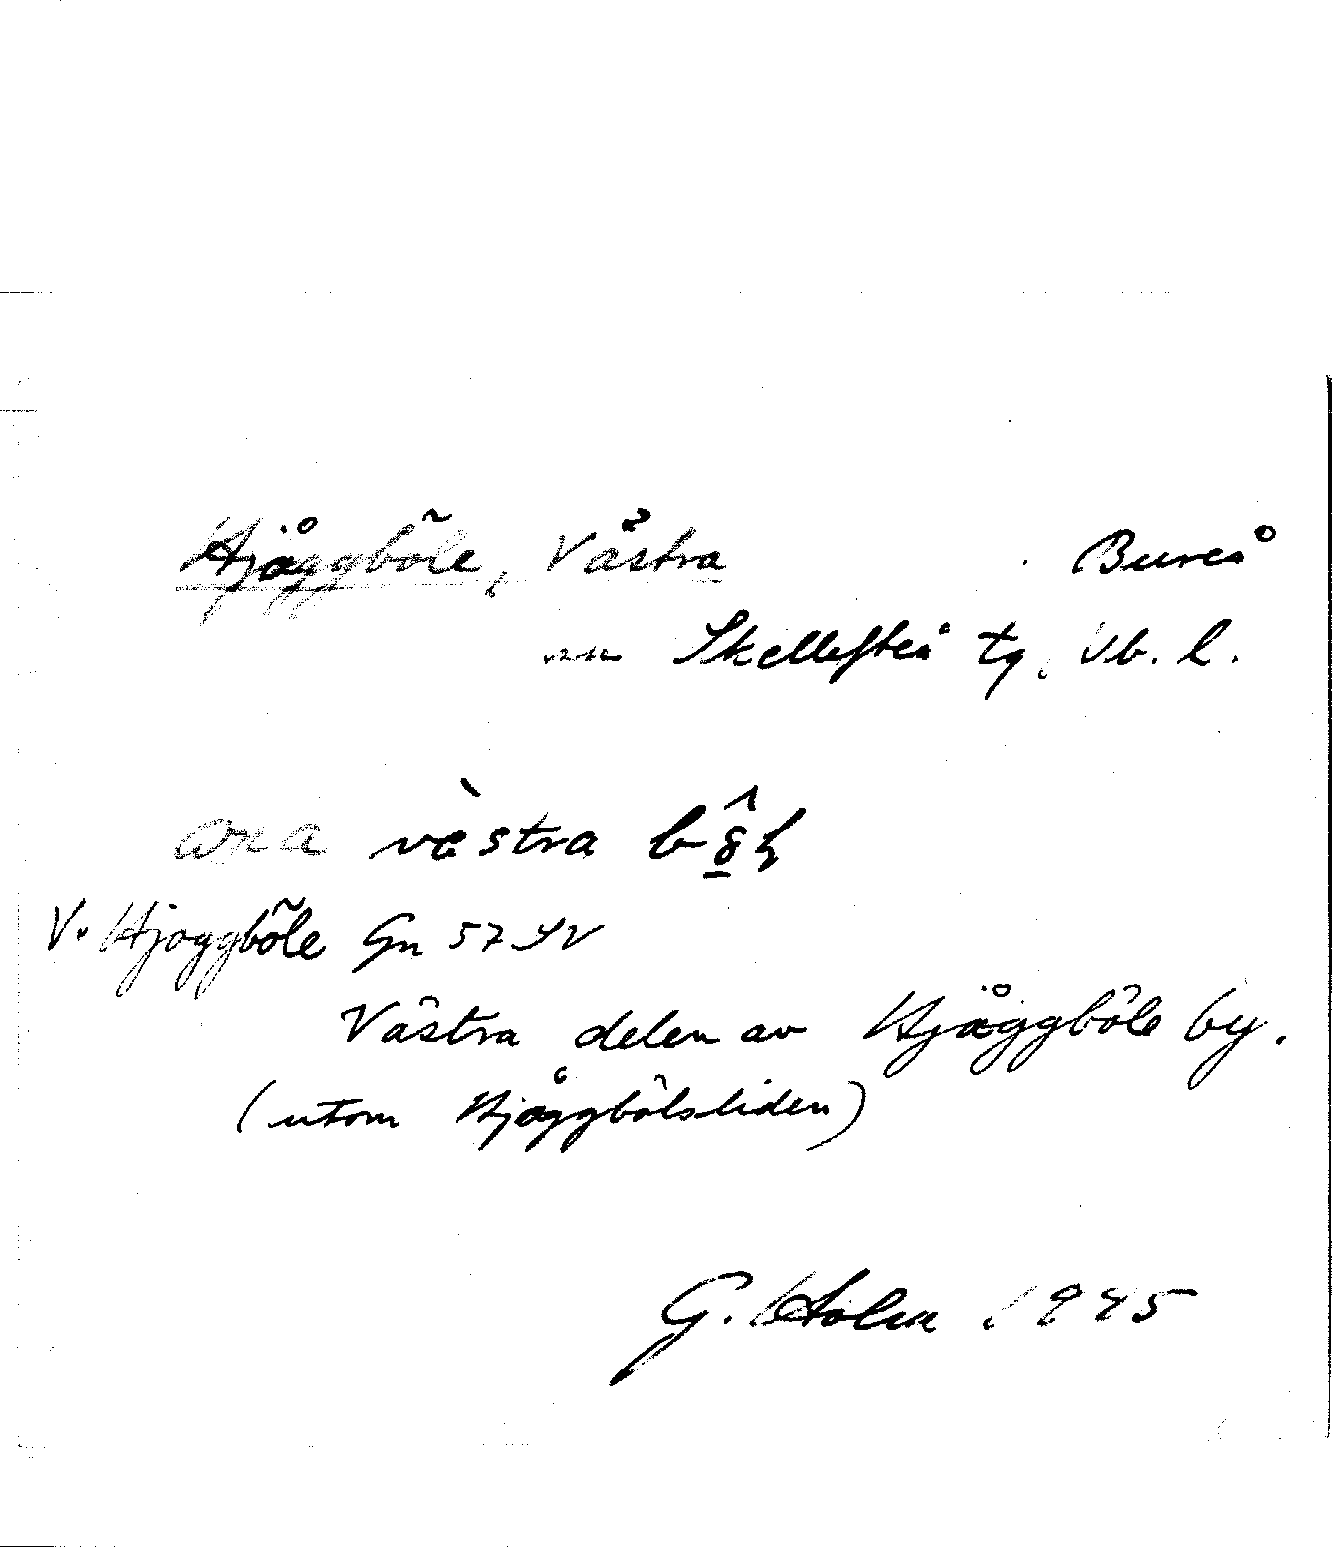 Hjåggböle, Västra Bureå
sn Skellefteå tg, Vb. l.
västra
V. Hjoggböle Gn 57 SV
Västra delen av Hjåggböle by.
(utom Hjåggbölsliden)
G. Holm 1945